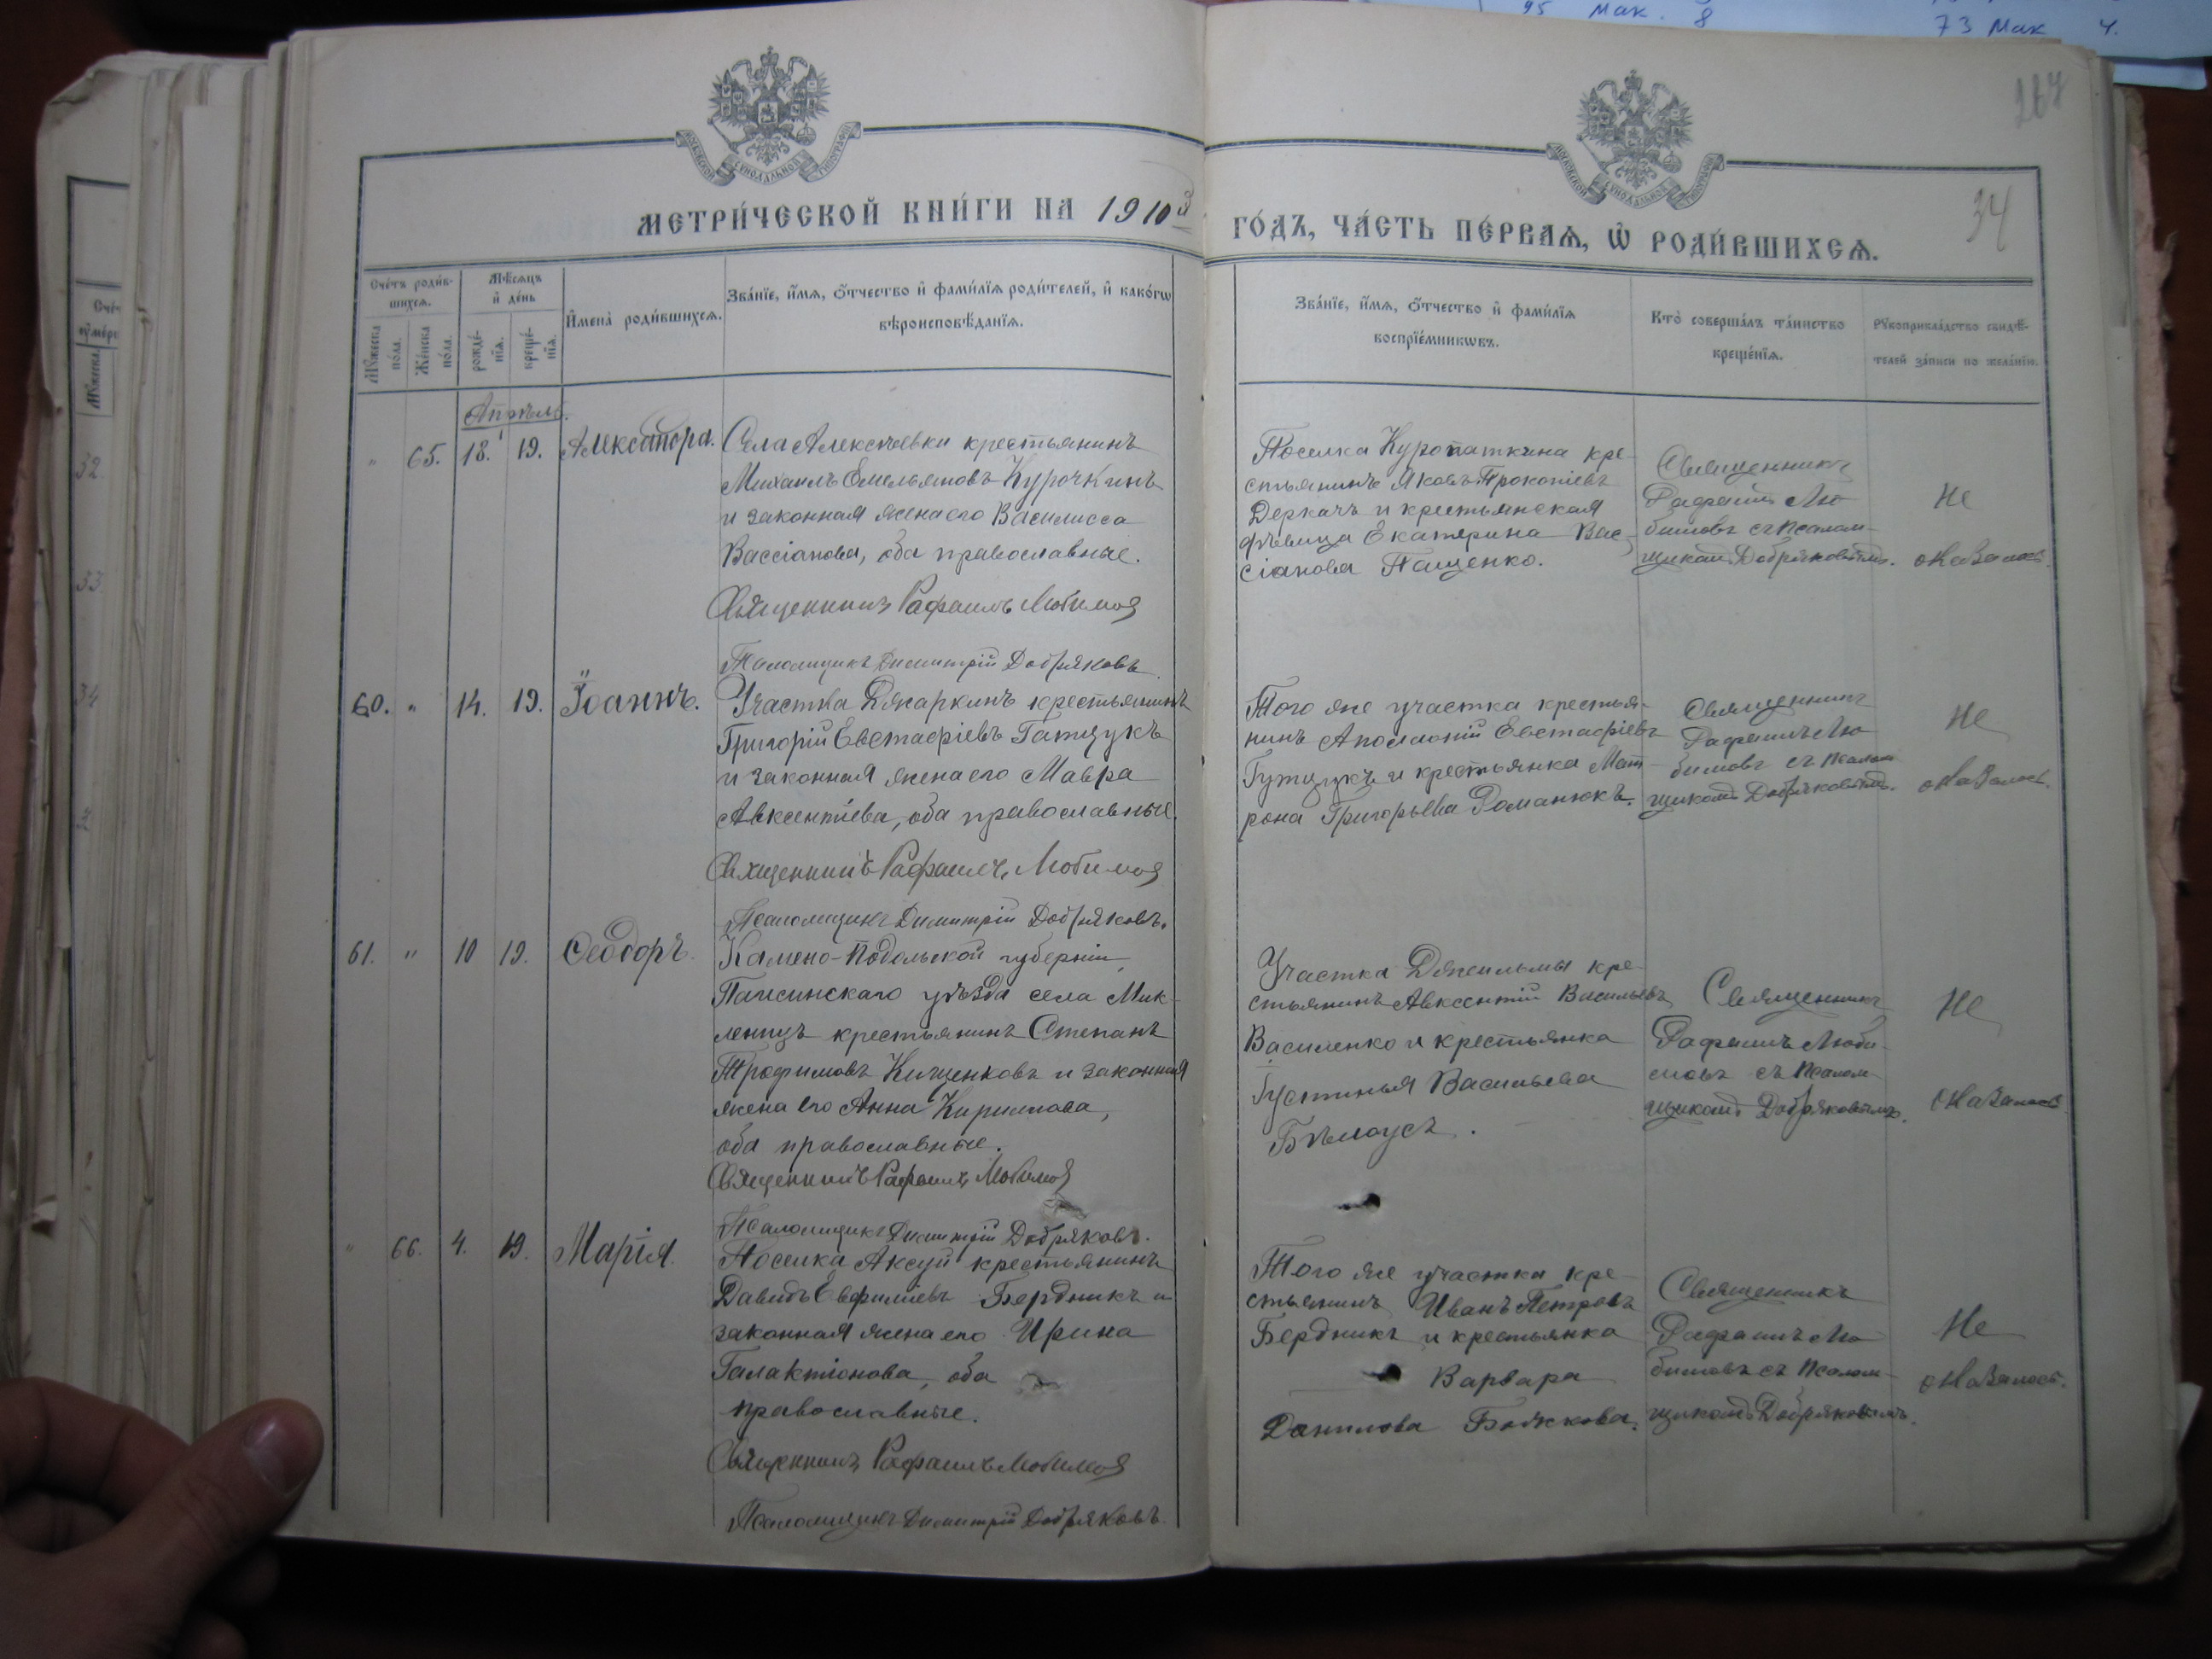 95 Мак. 8
73 Мак 4.
267
34
МОСКОВСКОЙ СУНОДАЛЬНОЙ ТИПОГРАФІИ
МОСКОВСКОЙ СУНОДАЛЬНОЙ ТИПОГРАФІИ
МЕТРИ́ЧЕСКОЙ КНИ́ГИ НА 1910й
ГО́ДЪ, ЧА́СТЬ ПЕ́РВАѦ, Ѽ РОДИ́ВШИХСѦ.
Сче́тъ роди́в-
шихсѧ.
Мꙋ́жеска по́ла.
Же́нска по́ла.
Мѣ́сѧцъ
и҆ де́нь
рожде́-
нїѧ.
креще́-
нїѧ.
И҆мена̀ роди́вшихсѧ.
Зва́нїе, и҆́мѧ, ѻ҆́тчество и҆ фами́лїѧ роди́телей, и҆ како́гѡ
вѣроисповѣ́данїѧ.
Зва́нїе, и҆́мѧ, ѻ҆́тчество и҆ фами́лїѧ
воспрїе́мникѡвъ.
Кто̀ соверша́лъ та́инство
креще́нїѧ.
Рꙋкоприкла́дство свидѣ́-
телей за́писи по жела́нїю.
Апрѣль.
" 65. 18. 19. Александра.
Села Алексѣевки крестьянинъ
Михаилъ Емельяновъ Курочкинъ
и законная жена его Василисса
Вассіанова, оба православные.
Священникъ Рафаилъ Любимов
Псаломщикъ Димитрій Добряковъ
Поселка Куропаткина кре-
стьянинъ Яковъ Прокопіевъ
Деркачъ и крестьянская
дѣвица Екатерина Вас-
сіанова Пащенко.
Священникъ
Рафаилъ Лю-
бимовъ съ псалом-
щикомъ Добряковымъ.
Не
оказалось.
60. " 14. 19. Іоаннъ.
Участка Джаркинъ крестьянинъ
Григорій Евстафіевъ Гатцукъ
и законная жена его Мавра
Авксентіева, оба православные.
Священникъ Рафаилъ Любимов
Псаломщикъ Димитрій Добряковъ.
Того же участка крестья-
нинъ Аполлоній Евстафіевъ
Гутцукъ и крестьянка Мат-
рона Григорьева Романюкъ.
Священникъ
Рафаилъ Лю-
бимовъ съ псалом-
щикомъ Добряковымъ.
Не
оказалось.
61. " 10 19. Ѳеодоръ.
Камено-Подольской губерніи,
уѣзда села Мик-
крестьянинъ Степанъ
Трофимовъ Кищенковъ и законная
жена его Анна Кириллова,
оба православные.
Священникъ Рафаилъ Любимов
Псаломщикъ Димитрій Добряковъ.
Участка Джильмы кре-
стьянинъ Авксентій Васильевъ
Василенко и крестьянка
Густинья Васильева
Бѣлоусъ.
Священникъ
Рафаилъ Люби-
мовъ съ псалом-
щикомъ Добряковымъ.
Не
оказалось.
" 66. 4. 19. Марія.
Поселка Аксуй крестьянинъ
Давидъ Евфиміевъ Бердникъ и
законная жена его Ирина
Галактіонова, оба
православные.
Священникъ Рафаилъ Любимов
Псаломщикъ Димитрій Добряковъ
Того же участка кре-
стьянинъ Иванъ Петровъ
Бердникъ и крестьянка
Варвара
Данилова Божкова.
Священникъ
Рафаилъ Лю-
бимовъ съ псалом-
щикомъ Добряковымъ.
Не
оказалось.